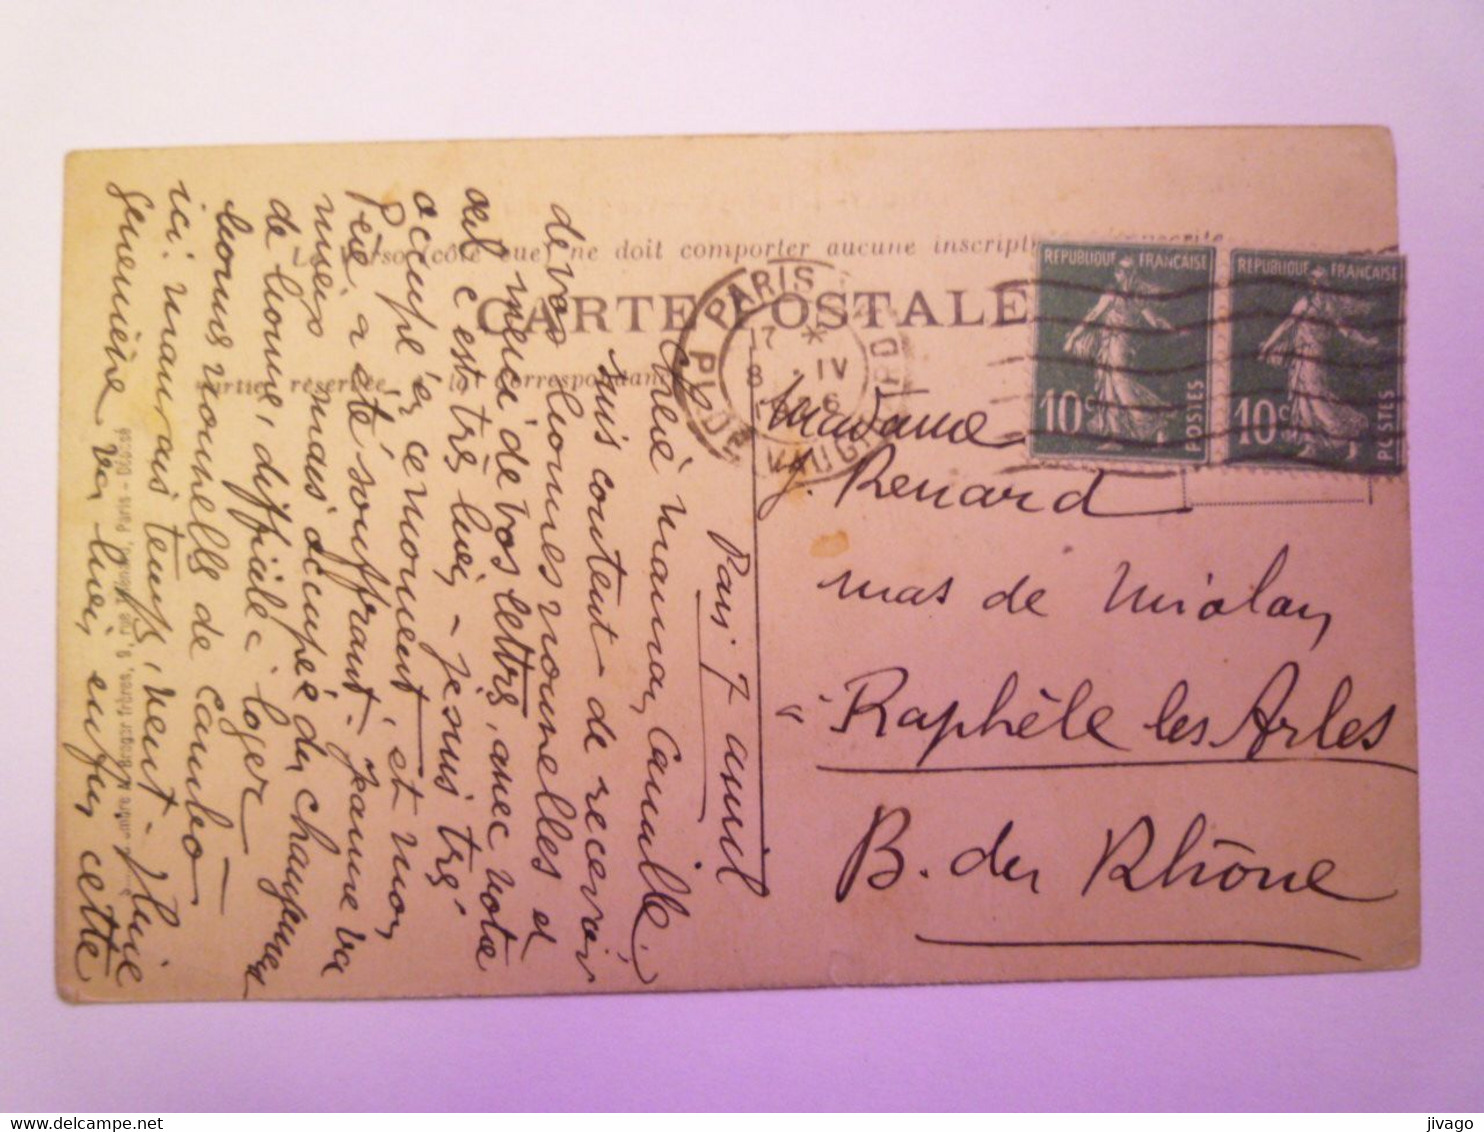 Le Verso (côté vue) ne doit comporter aucune inscription
CARTE POSTALE
partie réservée à la correspondance
PARIS
17 *
8 . IV
PL. DE VAUGIRARD
REPUBLIQUE FRANÇAISE
10c
POSTES
REPUBLIQUE FRANÇAISE
10c
POSTES
Paris 7 avril
Chère maman Camille,
suis content de recevoir
de vos bonnes nouvelles et
merci de vos lettres, avec votre
œil c'est très bien – je suis très
occupé en ce moment, et mon
Père a été souffrant. Jeanne va
mieux mais occupée du changement
de bonne, difficile à loger
bonnes nouvelles de Cambo –
ici mauvais temps, vent, pluie
va bien enfin cette
Madame
J. Renard
mas de
à Raphèle les Arles
B. du Rhône
delcampe.net
jivago